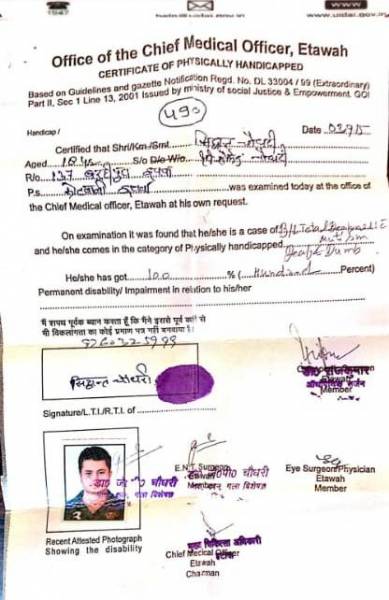 1947
www.uidai.gov.in
Office of the Chief Medical Officer, Etawah
CERTIFICATE OF PHYSICALLY HANDICAPPED
Based on Guidelines and gazette Notification Regd. No. DL 33004 / 99 (Extraordinary)
Part II, Sec 1 Line 13, 2001 Issued by ministry of social Justice & Empowerment. GOI
490
Handicap / Date
Certified that Shri/Km/Smt. सिद्धान्त चौधरी
Aged 18 yrs S/o D/o W/o चौधरी
R/o 137
P.s. was examined today at the office of
the Chief Medical officer, Etawah at his own request.
On examination it was found that he/she is a case of B/L Total
and he/she comes in the category of Physically handicapped Deaf & Dumb
He/she has got 100 % ( Hundred Percent)
Permanent disability/ Impairment in relation to his/her
मैं शपथ पूर्वक ब्यान करता हूँ कि मैंने इससे पूर्व कहीं से
भी विकलांगता का कोई प्रमाण पत्र नहीं बनवाया है।
सिद्धान्त चौधरी
डा० राजकुमार
Etawah
Member
Signature/L.T.I./R.T.I. of
E.N.T. Surgeon
Etawah
Member
चौधरी
गला विशेषज्ञ
चौधरी
गला विशेषज्ञ
Eye Surgeon/Physician
Etawah
Member
Recent Attested Photograph
Showing the disability
मुख्य चिकित्सा अधिकारी
इटावा
Chief Medical Officer
Etawah
Chairman